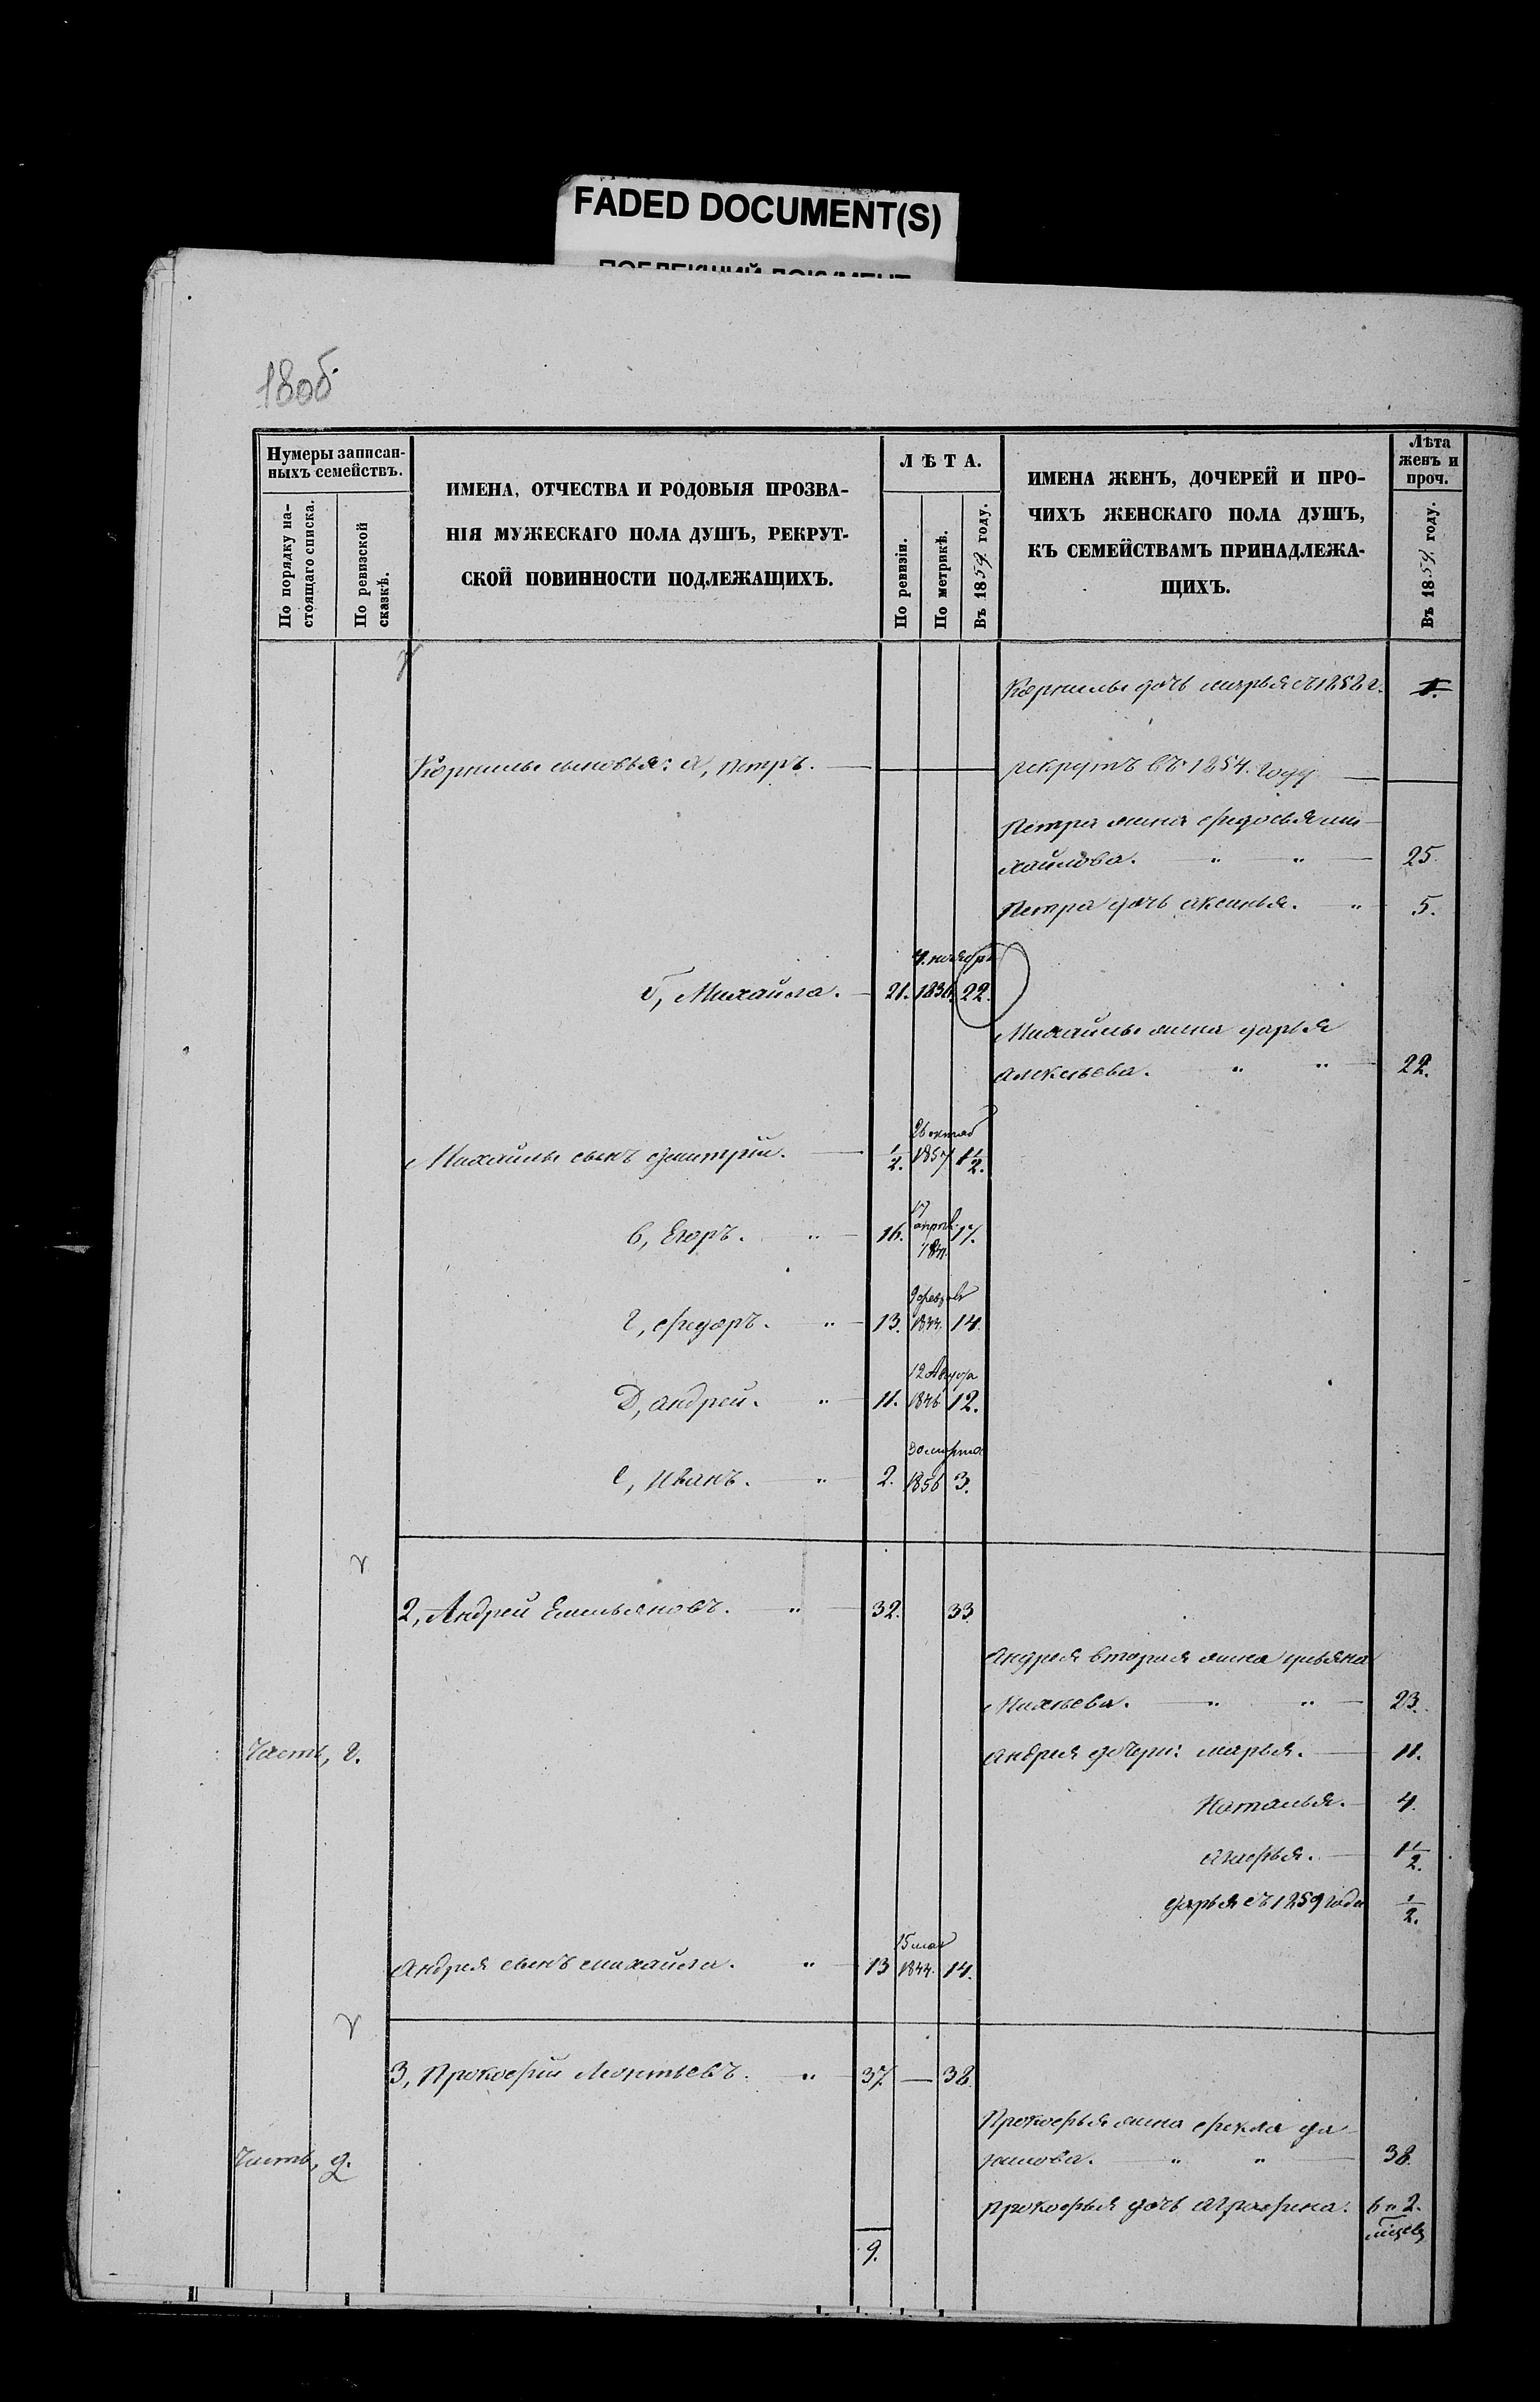 FADED DOCUMENT(S)
ПОБЛЕКШИЙ ДОКУМЕНТ
180об
Нумеры записан-
ныхъ семействъ.
По порядку на-
стоящаго списка.
По ревизской
сказкѣ.
ИМЕНА, ОТЧЕСТВА И РОДОВЫЯ ПРОЗВА-
НІЯ МУЖЕСКАГО ПОЛА ДУШЪ, РЕКРУТ-
СКОЙ ПОВИННОСТИ ПОДЛЕЖАЩИХЪ.
ЛѢТА.
По ревизіи.
По метрикѣ.
Въ 1859 году.
ИМЕНА ЖЕНЪ, ДОЧЕРЕЙ И ПРО-
ЧИХЪ ЖЕНСКАГО ПОЛА ДУШЪ,
КЪ СЕМЕЙСТВАМЪ ПРИНАДЛЕЖА-
ЩИХЪ.
Лѣта
женъ и
проч.
Въ 1859 году.
Корнилы дочь марья съ 1858 г. 1.
Корнилы сыновья: а, петръ. — рекрутъ въ 1854. году —
Петра жена федосья ми-
хайлова. " " — 25.
Петра дочь аксинья. " 5.
4. ноября
б, Михайла. — 21. 1836. 22.
Михайлы жена дарья
алексеева. " " — 22.
26 октяб
Михайлы сынъ дмитрій. — 1/2. 1857 1 1/2.
17
в, Егоръ. " — 16. апрѣл. 17.
1841.
9 февраля
г, федоръ. " — 13. 1844. 14.
12 Августа
Д, андрей. " — 11. 1846 12.
30 марта
е, иванъ. — " 2. 1856 3.
2, Андрей Емельяновъ. — " — 32. 33.
Андрея вторая жена ульяна
Михеева. — " " — 23.
Часть, г. андрея дочери: марья. — 11.
Наталья. — 4.
агафья. — 1 1/2.
дарья съ 1859 года 1/2.
15 мая
Андрея сынъ михайла. " — 13 1844. 14.
3, Прокофій Леонтьевъ. " — 37. — 38.
Прокофья жена фекла да-
Часть, д. нилова. — " " — 38.
прокофья дочь аграфена. 6 и 2.
мѣсяц
9.